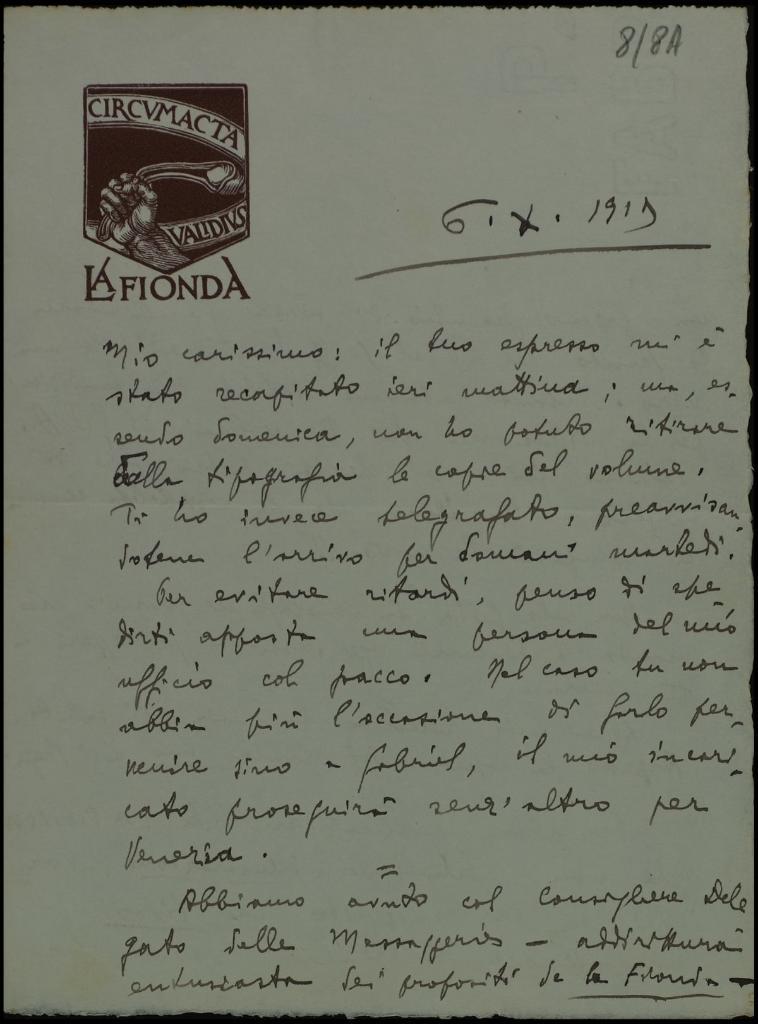 8/8A
CIRCVMACTA
VALIDIVS
LA FIONDA
6. X. 1919
Mio carissimo: il tuo espresso mi è
stato recapitato ieri mattina; ma, es-
sendo domenica, non ho potuto ritirare
dalla tipografia le copie del volume.
Ti ho invece telegrafato, preavvisan
dotene l'arrivo per domani martedì.
Per evitare ritardi, penso di spe
dirti apposta una persona del mio
ufficio col pacco. Nel caso tu non
abbia più l'occasione di farlo per-
venire sino a Gabriel, il mio incari-
cato proseguirà senz'altro per
Venezia.
=
Abbiamo avuto col Consigliere Dele
gato delle Messaggerie – addirittura
entusiasta dei propositi de la Fionda –